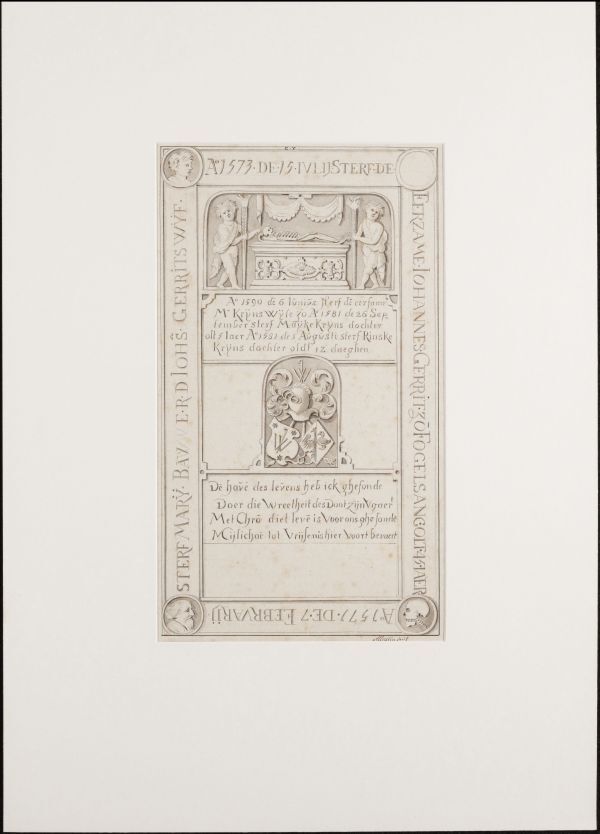 Aº 1573. DE. 15. IVLIJ STERF. DE
EERZAME. IOHANNES GERRIT. ZŌ FOGELSANG OLT.
Aº 1571. DE. 7 FEBRVARIJ
STERF MARŸ. BAV E.R.D IOHS. GERRITS WŸF.
Aº 1590 de 6 Iunius sterf de eersame
Mr Krÿns Wyle zo Aº 1581 de 26 Sep
tember sterf Maÿke Krÿns dochter
olt 5 Iaer Aº 1581 des Augusti sterf Rinske
Krÿns dochter oldt 12 daeghen
De have des levens heb ick ghefonde
Doer die Wreetheit des Doot zijn
Met Chrō diet levē is Voor ons ghesonde
tot hier voort bewaert